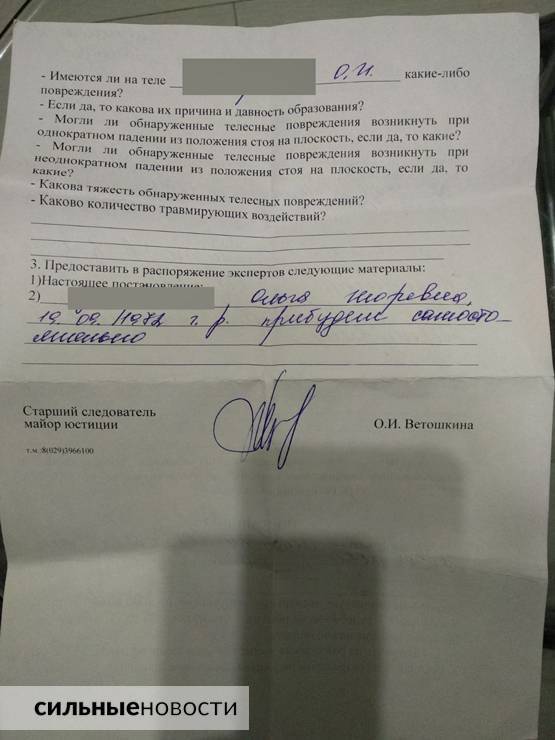 - Имеются ли на теле О.И. какие-либо
повреждения?
- Если да, то какова их причина и давность образования?
- Могли ли обнаруженные телесные повреждения возникнуть при
однократном падении из положения стоя на плоскость, если да, то какие?
- Могли ли обнаруженные телесные повреждения возникнуть при
неоднократном падении из положения стоя на плоскость, если да, то
какие?
- Какова тяжесть обнаруженных телесных повреждений?
- Каково количество травмирующих воздействий?
3. Предоставить в распоряжение экспертов следующие материалы:
1)Настоящее постановление;
2) , Ольга Игоревна,
19.09.1972 г.р. прибудет самосто-
ятельно
Старший следователь
майор юстиции
О.И. Ветошкина
т.м.:8(029)3966100
СИЛЬНЫЕНОВОСТИ